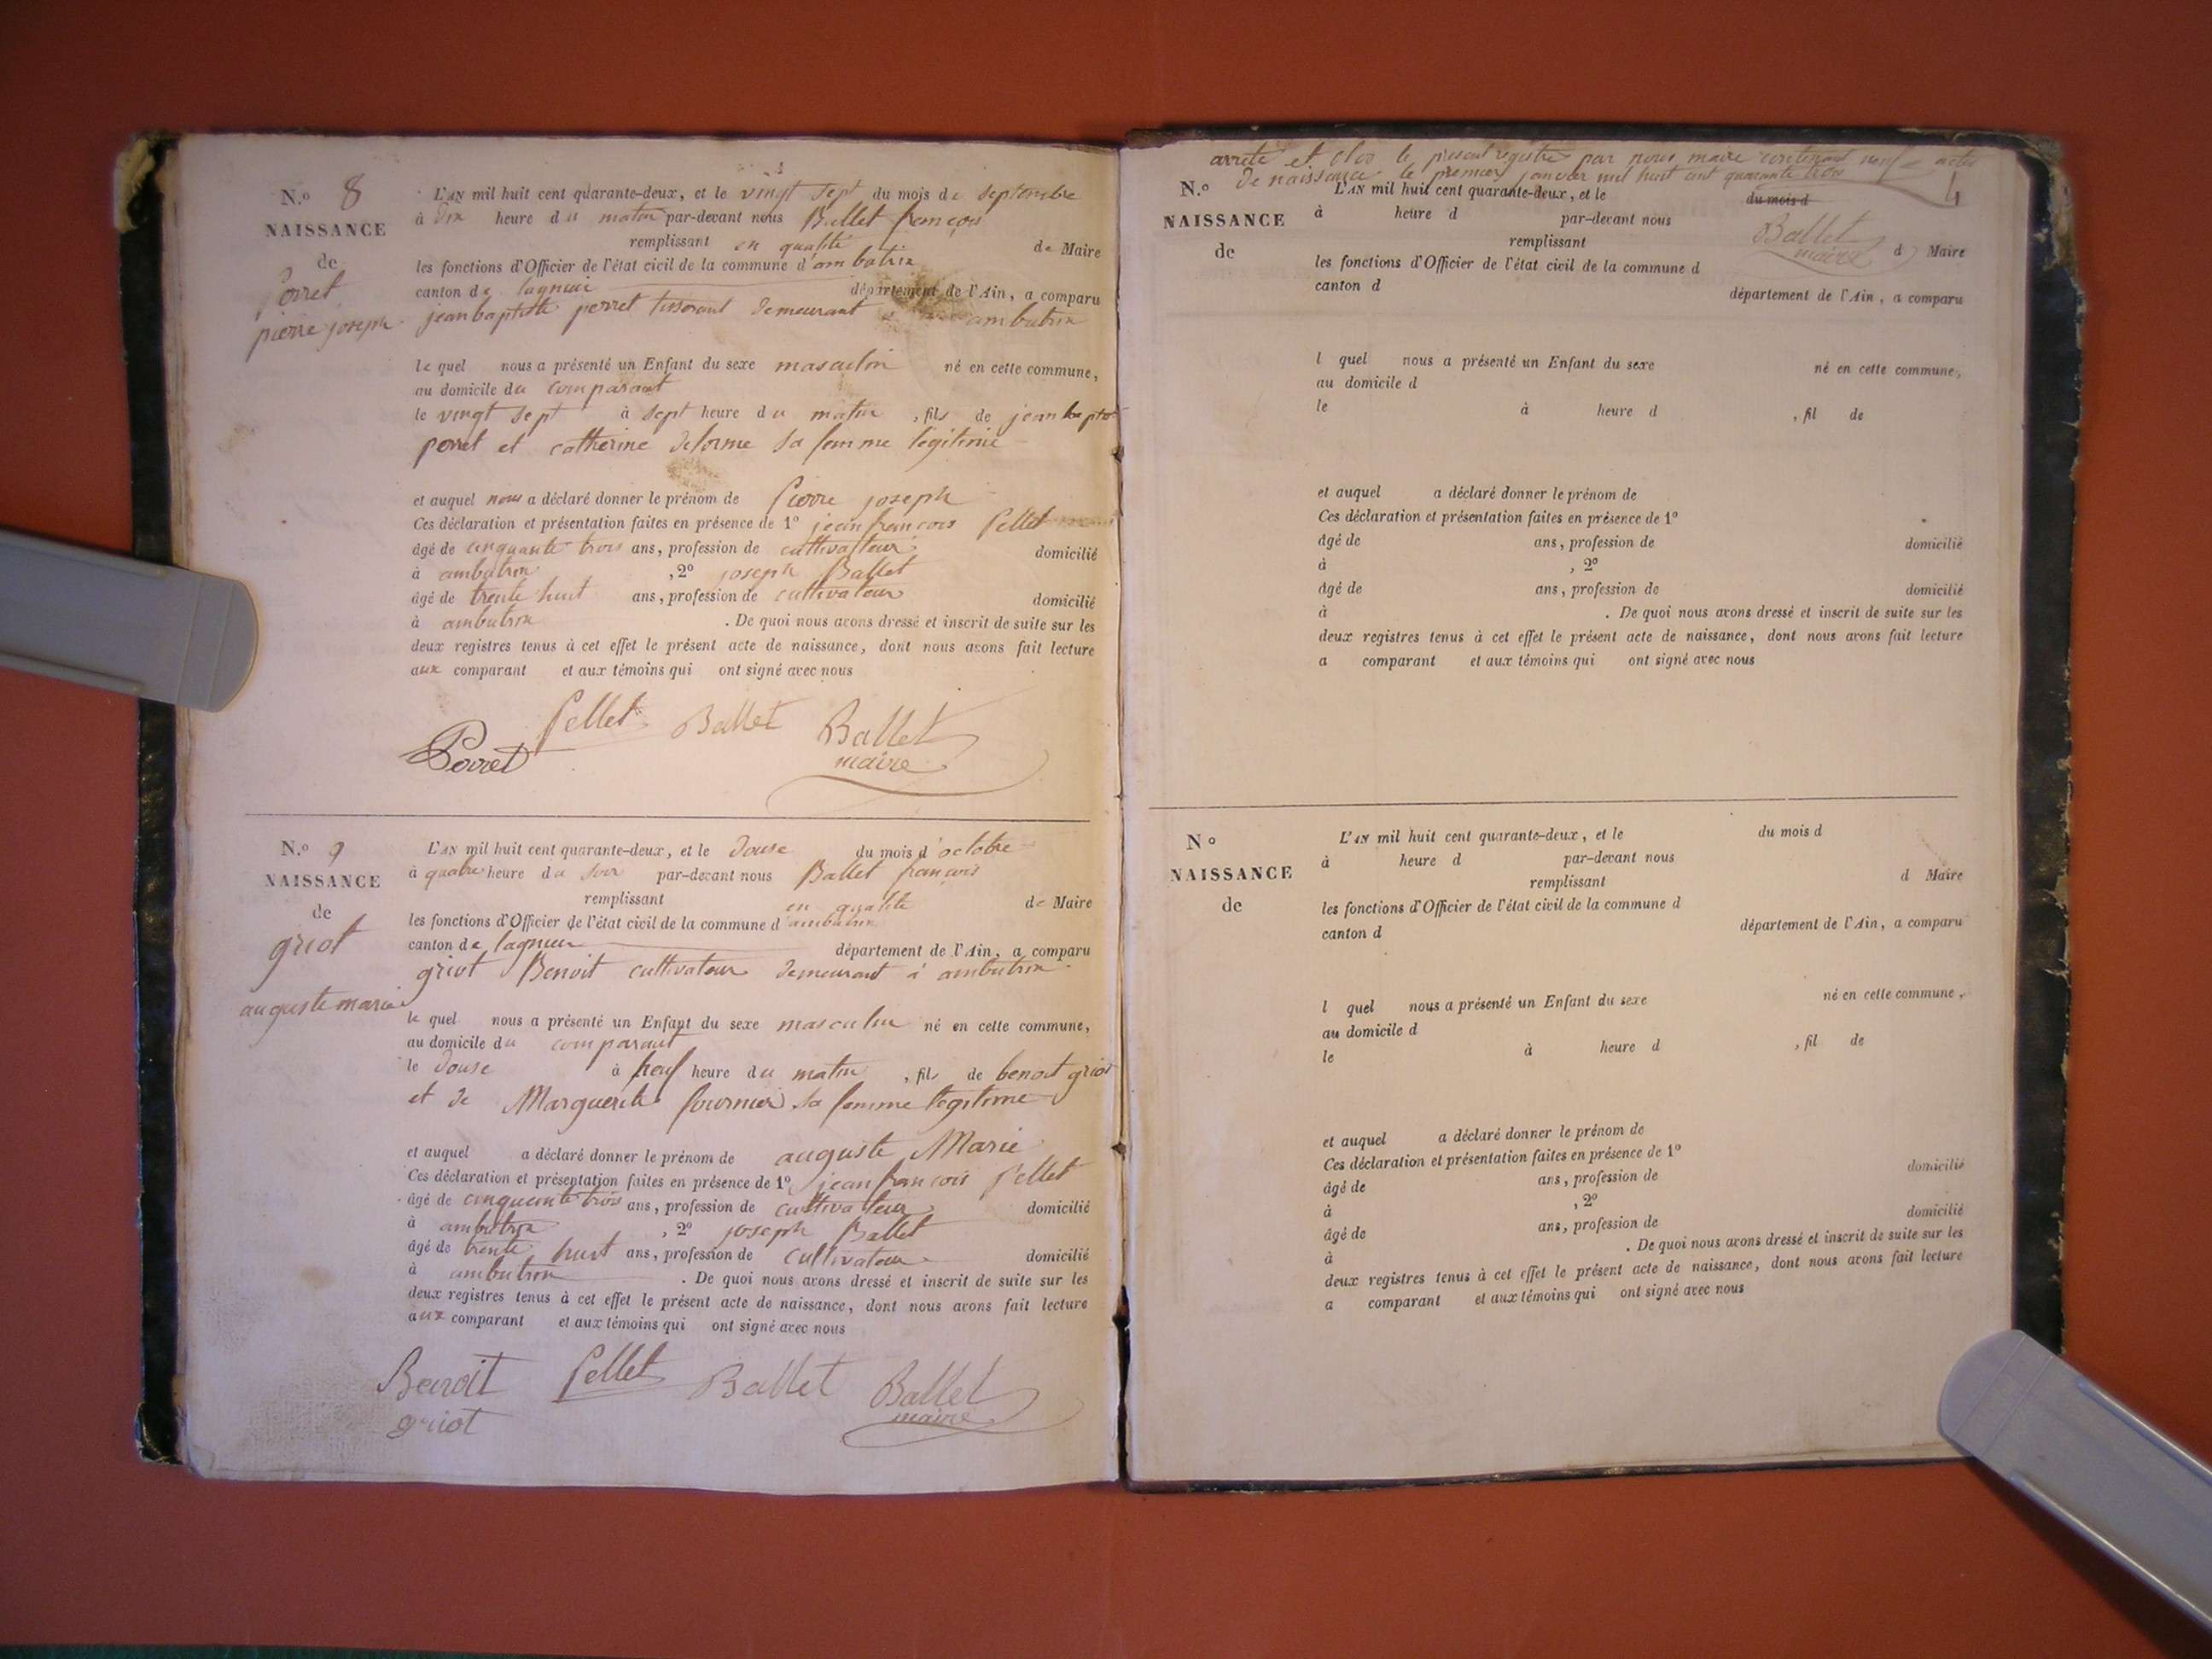 N.º 8
NAISSANCE
de
Perret
pierre joseph
L'AN mil huit cent quarante-deux, et le vingt sept du mois de septembre
à dix heure du matin par-devant nous Ballet françois
remplissant en qualité de Maire
les fonctions d'Officier de l'état civil de la commune d'ambutrix
canton de lagnieu département de l'Ain, a comparu
jean baptiste perret tisserant demeurant a ambutrix
le quel nous a présenté un Enfant du sexe masculin né en cette commune,
au domicile du comparant
le vingt sept à sept heure du matin, fils de jean bapte
perret et catherine delorme sa femme légitime
et auquel nous a déclaré donner le prénom de Pierre joseph
Ces déclaration et présentation faites en présence de 1º jean francois Pellet
âgé de cinquante trois ans, profession de cultivateur domicilié
à ambutrix, 2º joseph Ballet
âgé de trente huit ans, profession de cultivateur domicilié
à ambutrix. De quoi nous avons dressé et inscrit de suite sur les
deux registres tenus à cet effet le présent acte de naissance, dont nous avons fait lecture
aux comparant et aux témoins qui ont signé avec nous
Pellet Ballet Ballet
Perret maire
N.º 9
NAISSANCE
de
griot
auguste marie
L'AN mil huit cent quarante-deux, et le douse du mois d'octobre
à quatre heure du soir par-devant nous Ballet francois
remplissant en qualité de Maire
les fonctions d'Officier de l'état civil de la commune d'ambutrix
canton de lagnieu département de l'Ain, a comparu
griot Benoit cultivateur demeurant à ambutrix
le quel nous a présenté un Enfant du sexe masculin né en cette commune,
au domicile du comparant
le douse à neuf heure du matin, fils de benoit griot
et de Marguerite fournier sa femme légitime
et auquel a déclaré donner le prénom de auguste Marie
Ces déclaration et présentation faites en présence de 1º jean francois Pellet
âgé de cinquante trois ans, profession de cultivateur domicilié
à ambutrix, 2º joseph Ballet
âgé de trente huit ans, profession de cultivateur domicilié
à ambutrix. De quoi nous avons dressé et inscrit de suite sur les
deux registres tenus à cet effet le présent acte de naissance, dont nous avons fait lecture
aux comparant et aux témoins qui ont signé avec nous
Benoit Pellet Ballet Ballet
griot maire
arreté et clos le present registre par nous maire contenant neuf acte
de naissance le premier janvier mil huit cent quarante trois
N.º
NAISSANCE
de
L'AN mil huit cent quarante-deux, et le du mois d
à heure d par-devant nous
Ballet
maire
remplissant d Maire
les fonctions d'Officier de l'état civil de la commune d
canton d département de l'Ain, a comparu
l quel nous a présenté un Enfant du sexe né en cette commune,
au domicile d
le à heure d , fil de
et auquel a déclaré donner le prénom de
Ces déclaration et présentation faites en présence de 1º
âgé de ans, profession de domicilié
à , 2º
âgé de ans, profession de domicilié
à . De quoi nous avons dressé et inscrit de suite sur les
deux registres tenus à cet effet le présent acte de naissance, dont nous avons fait lecture
a comparant et aux témoins qui ont signé avec nous
Nº
NAISSANCE
de
L'AN mil huit cent quarante-deux, et le du mois d
à heure d par-devant nous
remplissant d Maire
les fonctions d'Officier de l'état civil de la commune d
canton d département de l'Ain, a comparu
l quel nous a présenté un Enfant du sexe né en cette commune,
au domicile d
le à heure d , fil de
et auquel a déclaré donner le prénom de
Ces déclaration et présentation faites en présence de 1º
âgé de ans, profession de domicilié
à , 2º
âgé de ans, profession de domicilié
à . De quoi nous avons dressé et inscrit de suite sur les
deux registres tenus à cet effet le présent acte de naissance, dont nous avons fait lecture
a comparant et aux témoins qui ont signé avec nous